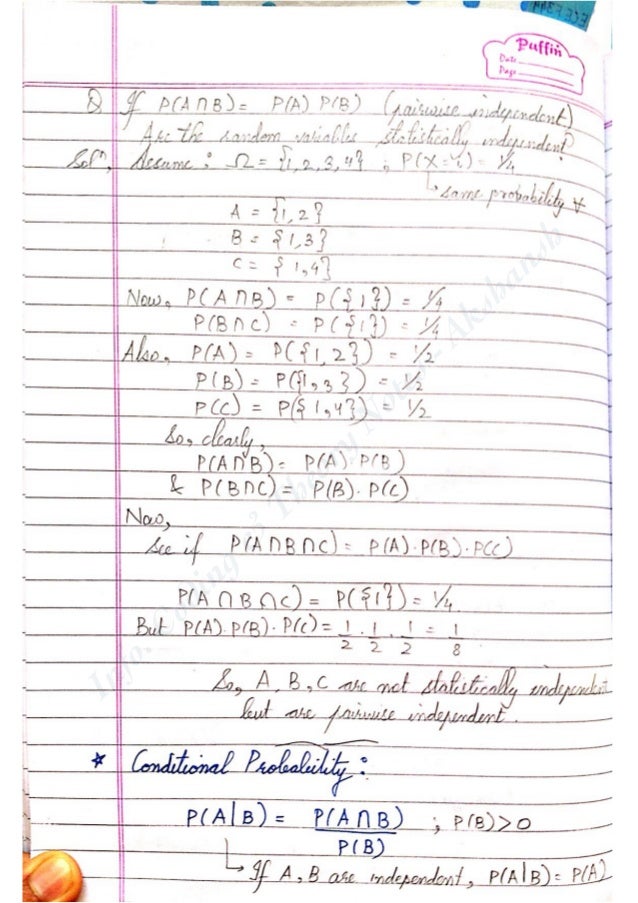 Puffin
Date
Page
Q If P(A∩B) = P(A) P(B) (pairwise independent)
Are the random variables statistically independent?
Solⁿ, Assume : Ω = {1,2,3,4} ; P(X=i) = 1/4
↳ same probability ∀
A = {1,2}
B = {1,3}
C = {1,4}
Now, P(A∩B) = P({1}) = 1/4
P(B∩C) = P({1}) = 1/4
Also, P(A) = P({1,2}) = 1/2
P(B) = P({1,3}) = 1/2
P(C) = P({1,4}) = 1/2
So, clearly,
P(A∩B) = P(A).P(B)
& P(B∩C) = P(B).P(C)
Now,
See if P(A∩B∩C) = P(A).P(B).P(C)
P(A∩B∩C) = P({1}) = 1/4
But P(A).P(B).P(C) = 1/2 . 1/2 . 1/2 = 1/8
So, A, B, C are not statistically independent
but are pairwise independent.
* Conditional Probability :
P(A|B) = P(A∩B) / P(B) ; P(B)>0
↳ If A, B are independent, P(A|B) = P(A)
Info. Coding Theory Notes - Akshansh